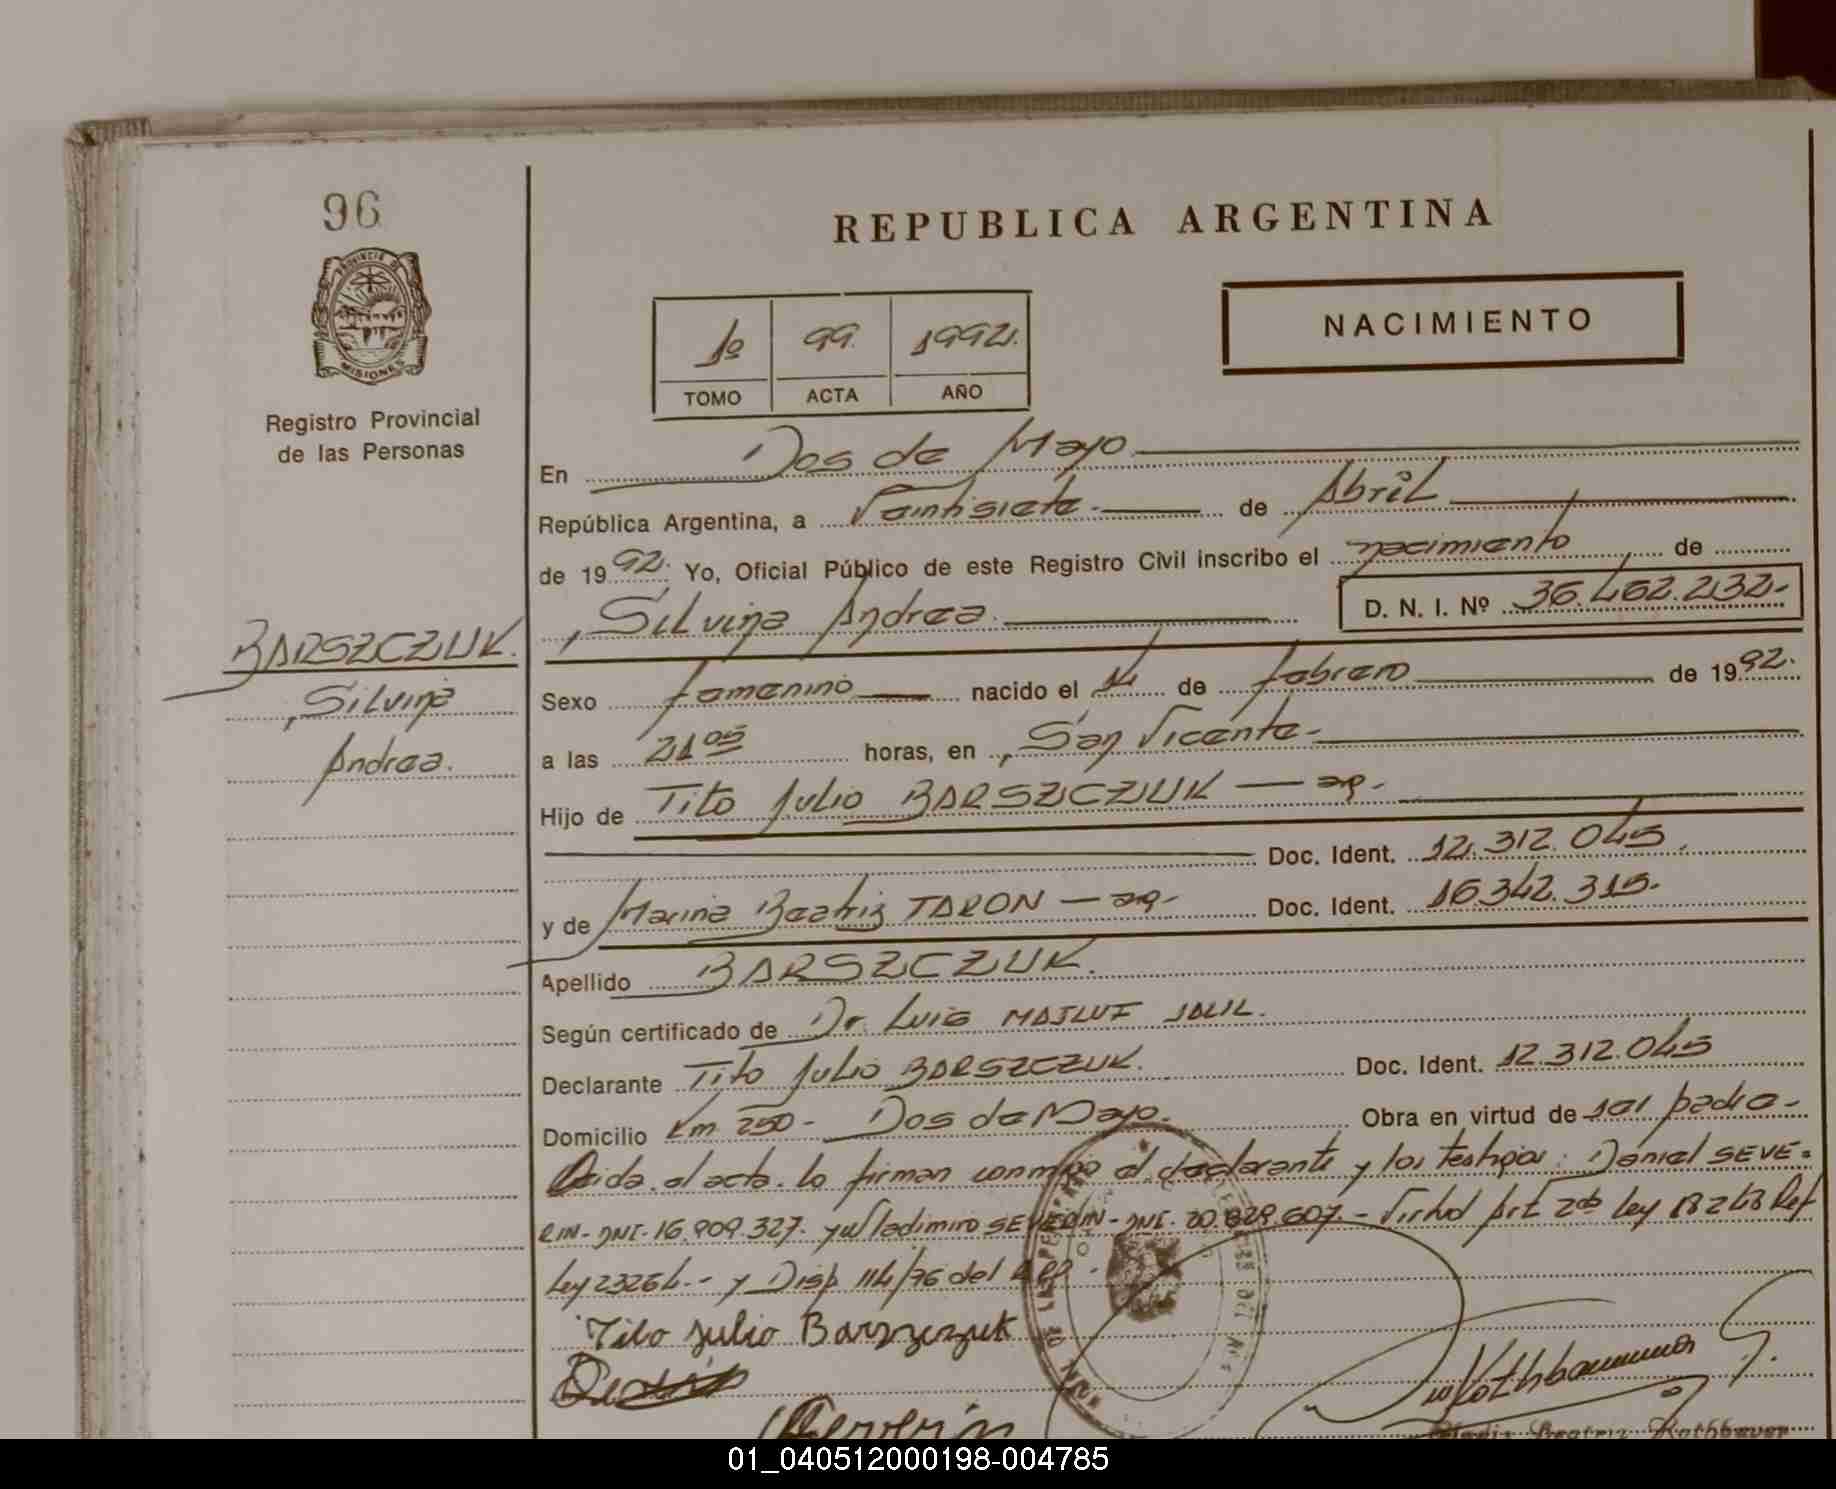 96
PROVINCIA DE
MISIONES
Registro Provincial
de las Personas
BARSZCZUK.
Silvina
Andrea.
REPUBLICA ARGENTINA
NACIMIENTO
1º 99. 1992.
TOMO ACTA AÑO
En Dos de Mayo
República Argentina, a Veintisiete.- de Abril
de 1992. Yo, Oficial Público de este Registro Civil inscribo el nacimiento de
Silvina Andrea. D. N. I. Nº 36.462.232.-
Sexo femenino nacido el 14 de febrero de 1992.
a las 21 05 horas, en San Vicente.-
Hijo de Tito Julio BARSZCZUK — ar.-
Doc. Ident. 12.312.045.
y de Marina Beatriz TARON — ar.- Doc. Ident. 16.342.315.
Apellido BARSZCZUK.
Según certificado de Dr Luis MAJLUF JALIL.
Declarante Tito Julio BARSZCZUK. Doc. Ident. 12.312.045
Domicilio Km 250 - Dos de Mayo. Obra en virtud de ser padre.-
Leida el acta lo firman conmigo el declarante y los testigos: Daniel SEVE=
RIN- DNI- 16.909.327. y Wladimiro SEVERIN- DNI. 20.829.607.- Virtud Art 2do Ley 18248 Ref
Ley 23264.- y Disp 114/76 del RPP.-
Tito Julio Barszczuk
Severin
01_040512000198-004785